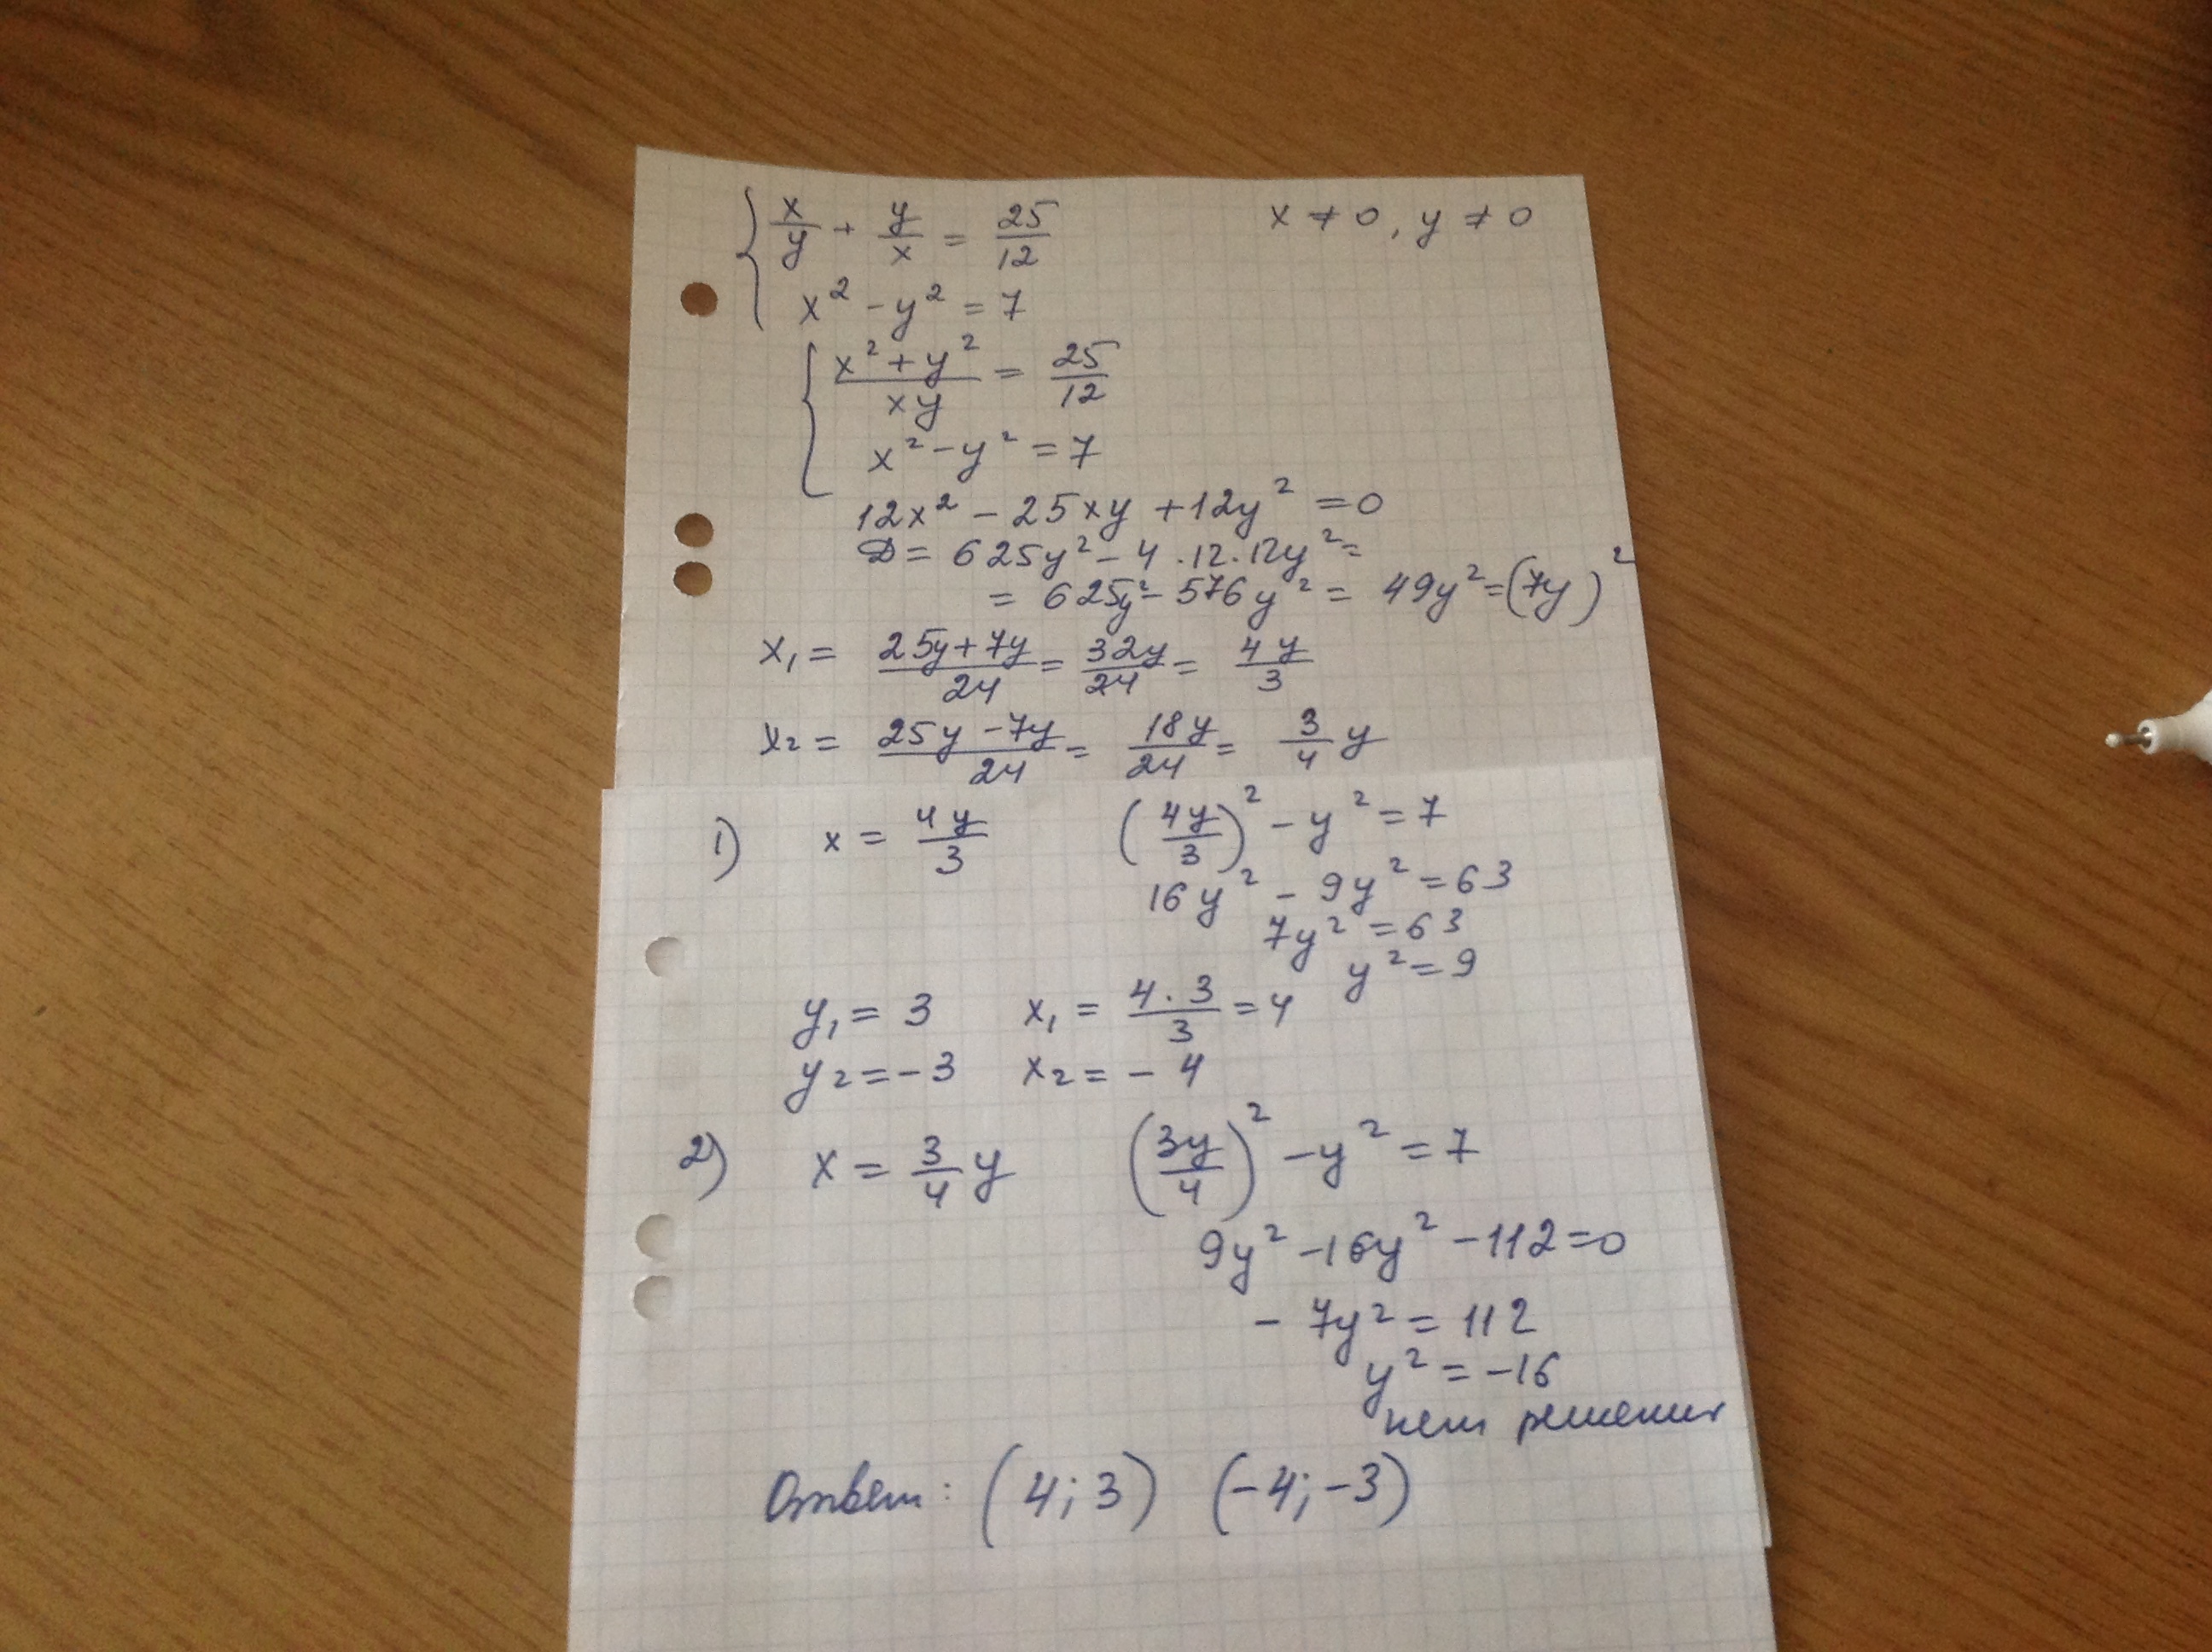 { x/y + y/x = 25/12    x ≠ 0, y ≠ 0
x² - y² = 7
{ (x² + y²)/(xy) = 25/12
x² - y² = 7
12x² - 25xy + 12y² = 0
D = 625y² - 4 · 12 · 12y² =
= 625y² - 576y² = 49y² = (7y)²
x₁ = (25y + 7y)/24 = 32y/24 = 4y/3
x₂ = (25y - 7y)/24 = 18y/24 = 3/4 y
1) x = 4y/3    (4y/3)² - y² = 7
16y² - 9y² = 63
7y² = 63
y² = 9
y₁ = 3    x₁ = (4 · 3)/3 = 4
y₂ = -3    x₂ = -4
2) x = 3/4 y    (3y/4)² - y² = 7
9y² - 16y² - 112 = 0
- 7y² = 112
y² = -16
нет решения
Ответ: (4; 3) (-4; -3)